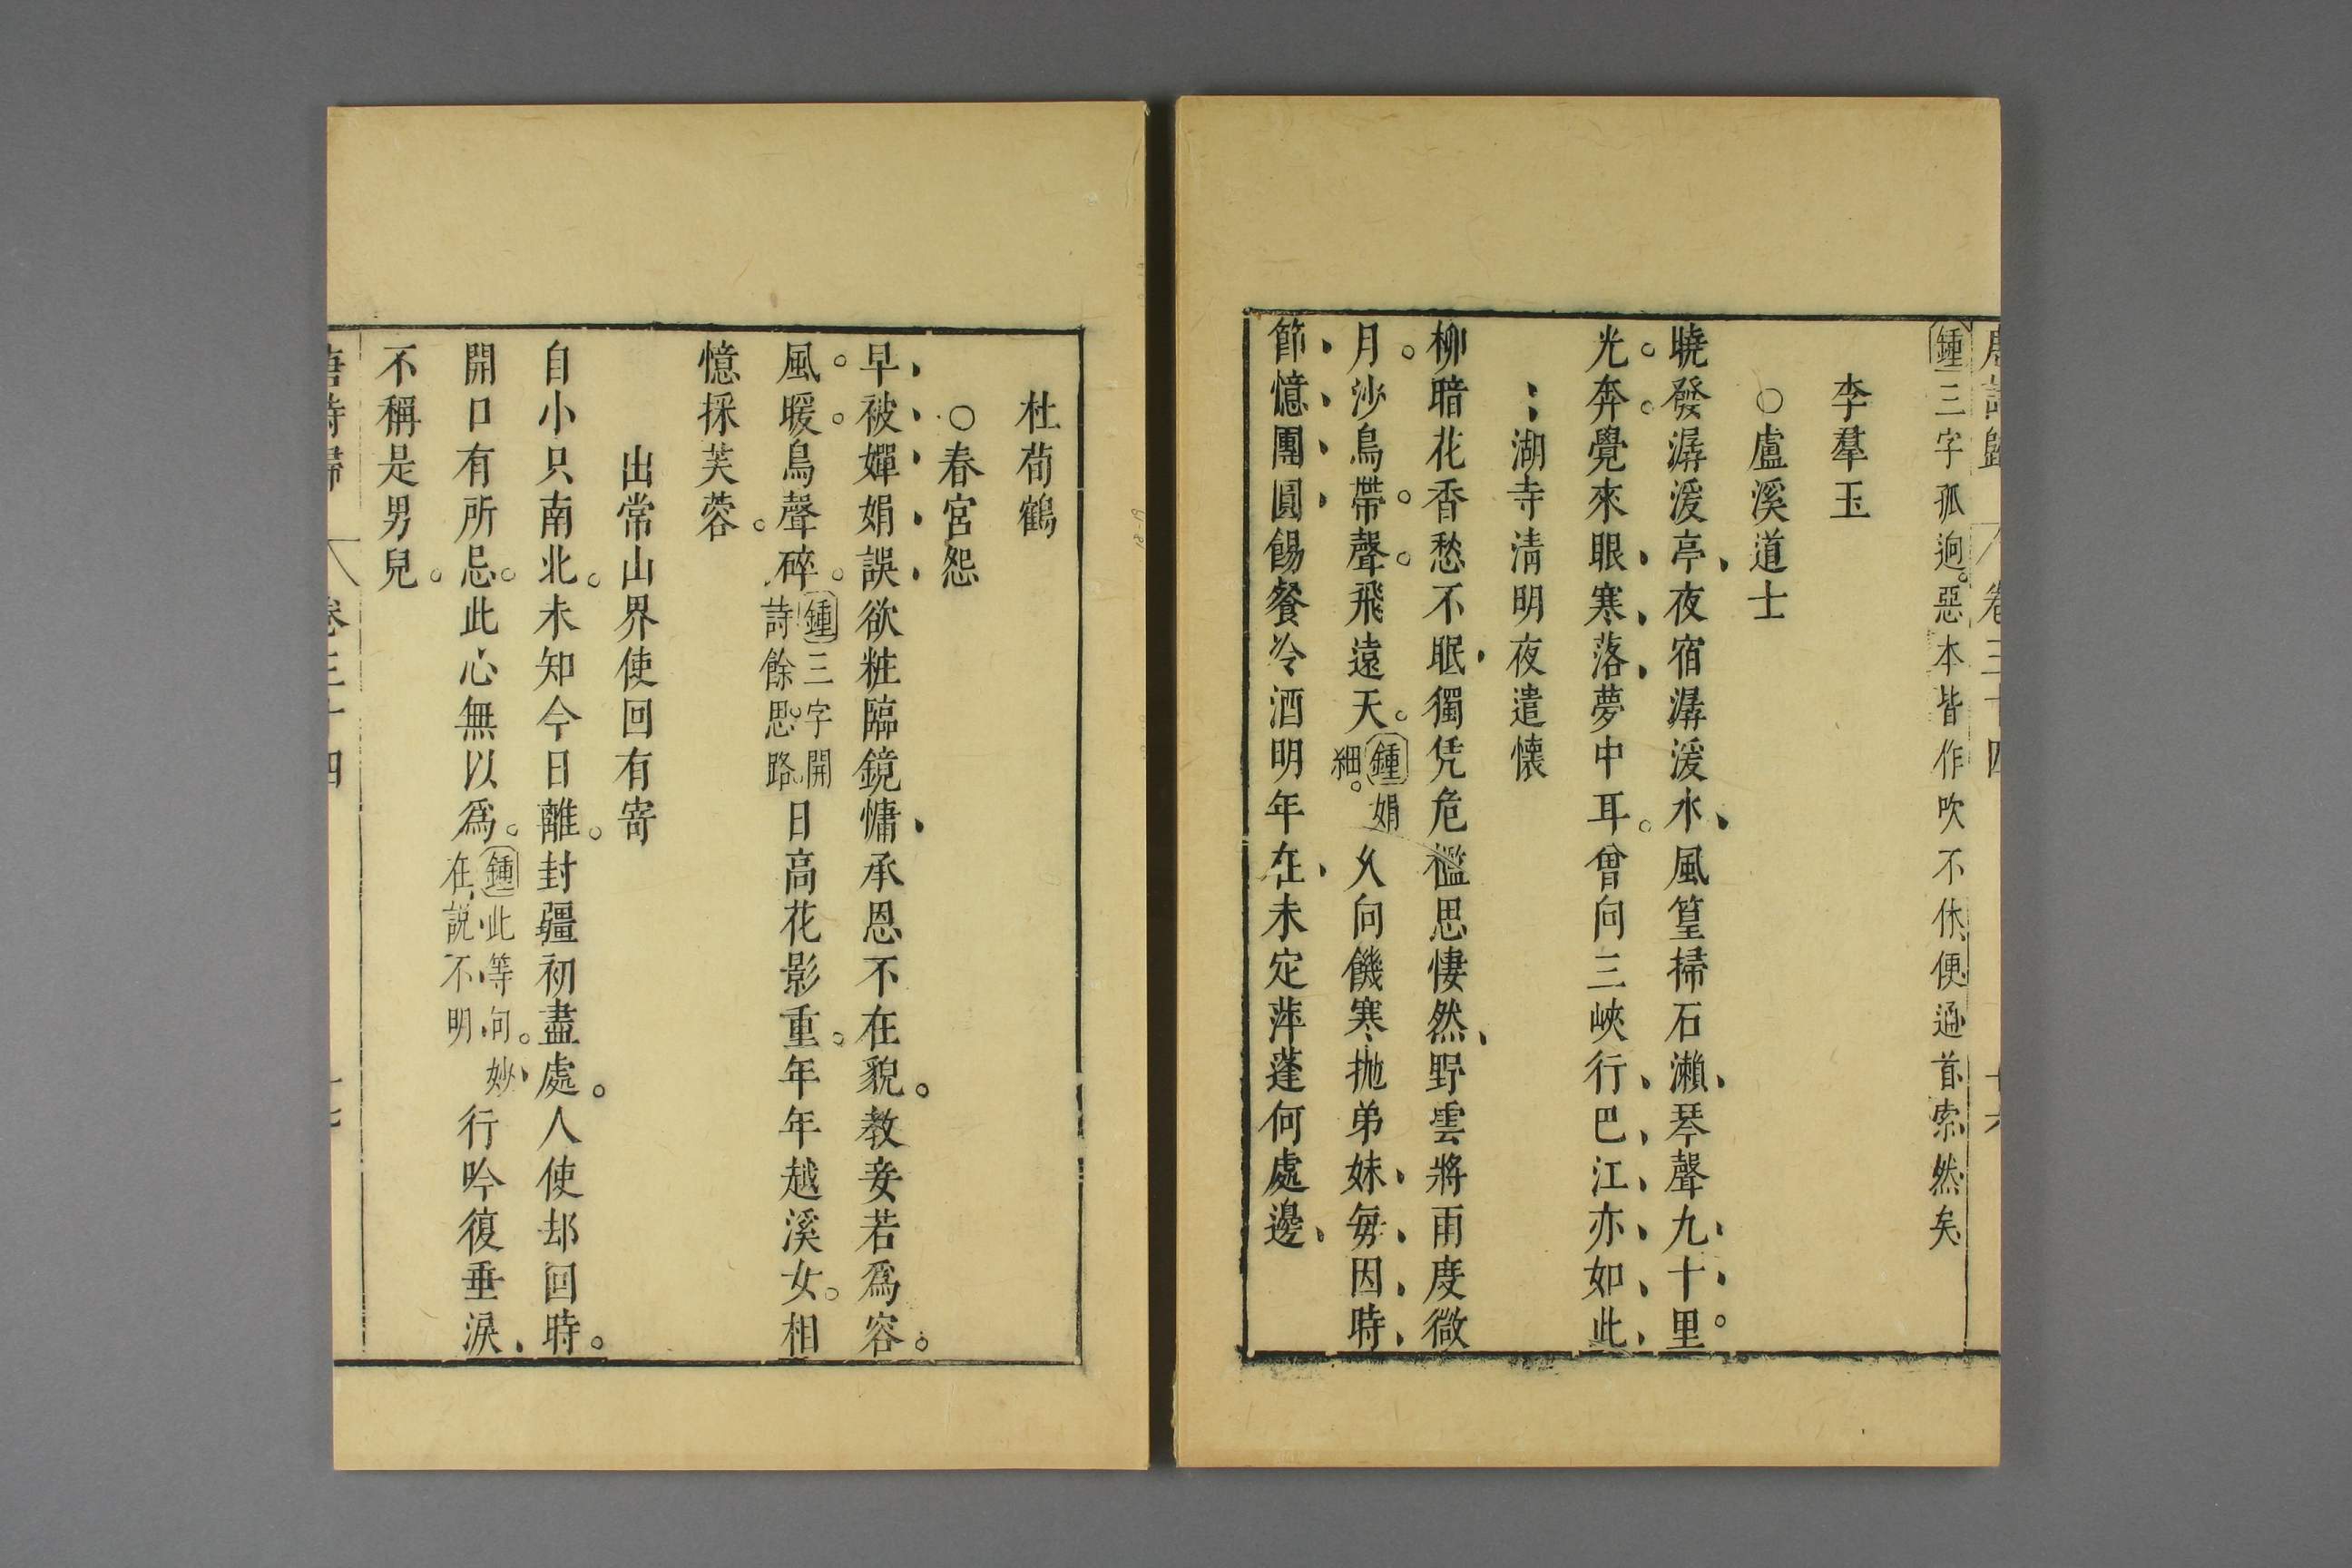 唐詩歸 卷三十四 十六
鍾三字孤迥惡本皆作吹不休便通首索然矣
李羣玉
○盧溪道士
曉發潺湲亭夜宿潺湲水風篁掃石瀨琴聲九十里
光奔覺來眼寒落夢中耳曾向三峽行巴江亦如此
湖寺清明夜遣懷
柳暗花香愁不眠獨凭危檻思悽然野雲將雨度微
月沙鳥帶聲飛遠天鍾娟細久向饑寒抛弟妹每因時
節憶團圓餳餐冷酒明年在未定萍蓬何處邊
杜荀鶴
○春宮怨
早被嬋娟誤欲粧臨鏡慵承恩不在貌教妾若爲容
風暖鳥聲碎鍾三字開詩餘思路日高花影重年年越溪女相
憶採芙蓉
出常山界使回有寄
自小只南北未知今日離封疆初盡處人使却回時
開口有所忌此心無以爲鍾此等句妙在說不明行吟復垂淚
不稱是男兒
唐詩歸 卷三十四 十七